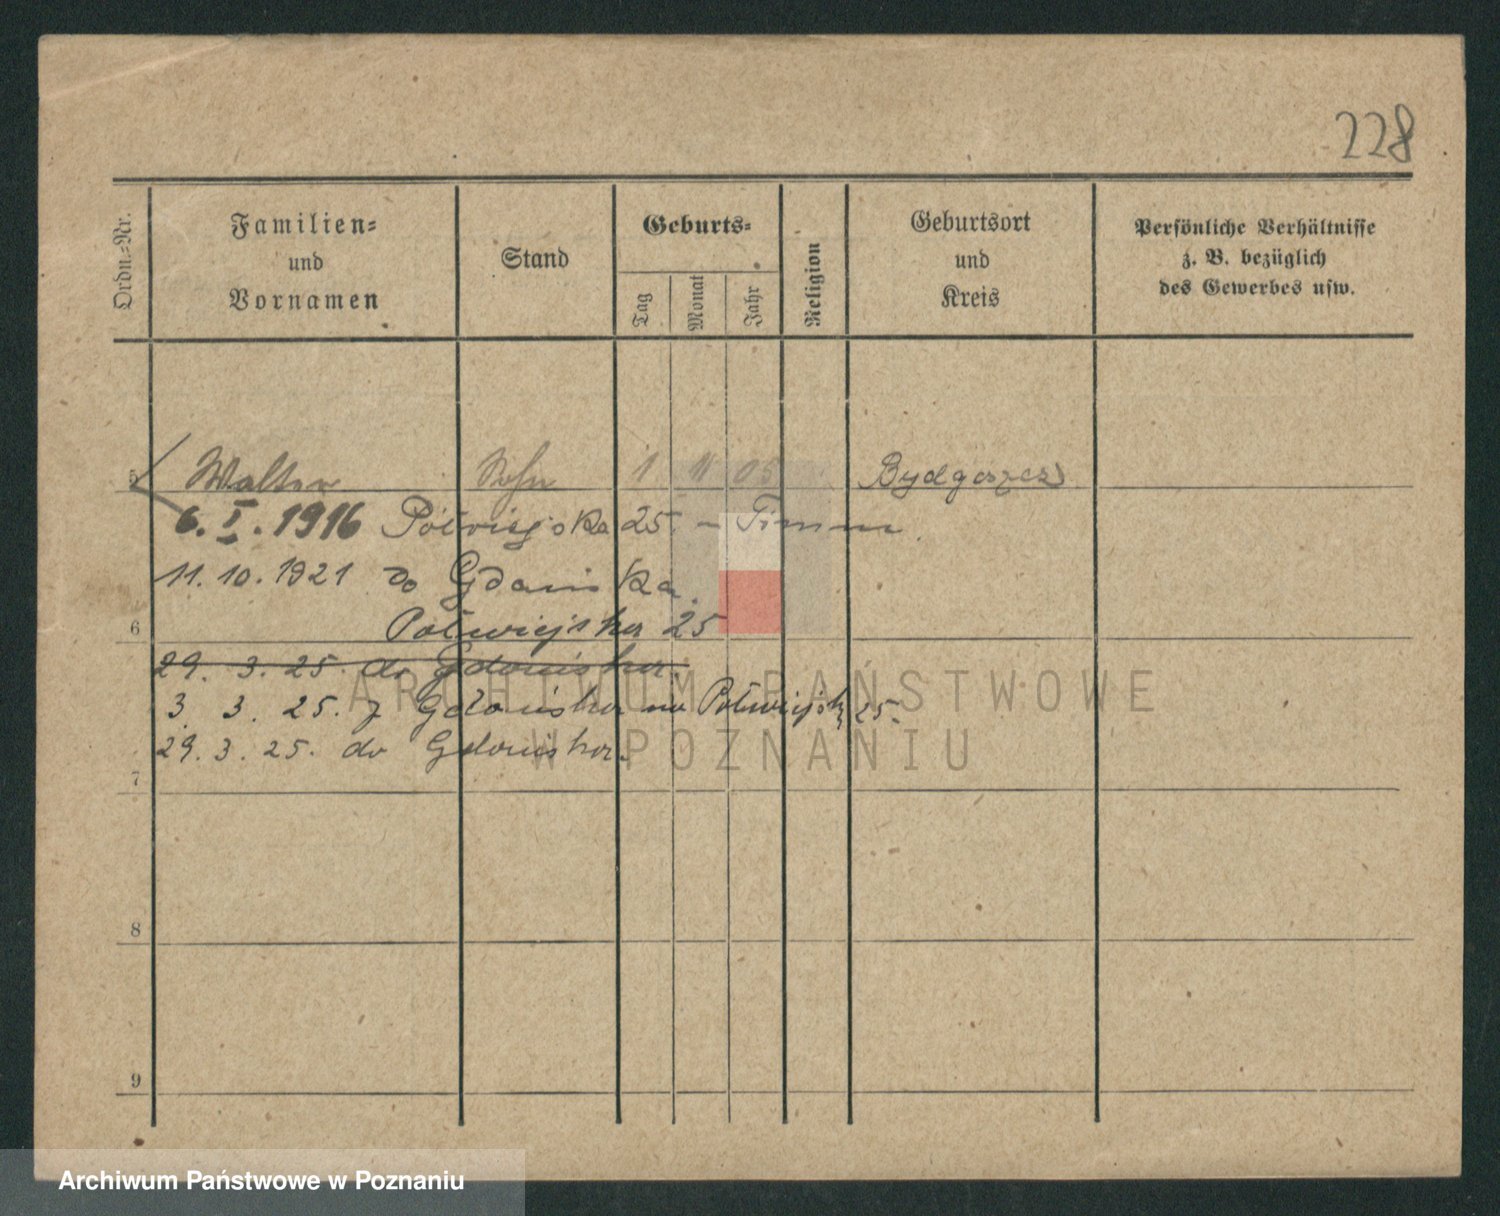 228
Ordn.-Nr.
Familien-
und
Vornamen
Stand
Geburts-
Tag
Monat
Jahr
Religion
Geburtsort
und
Kreis
Persönliche Verhältnisse
z. B. bezüglich
des Gewerbes usw.
5 Walter Sohn 1 11 05 Bydgoszcz
6. I. 1916 Półwiejska 25. – Timm.
11. 10. 1921 do Gdańska.
6 Półwiejska 25
29. 3. 25. do Gdańska.
3. 3. 25. z Gdańska na Półwiejską 25.
29. 3. 25. do Gdańska.
7
8
9
ARCHIWUM PAŃSTWOWE
W POZNANIU
Archiwum Państwowe w Poznaniu